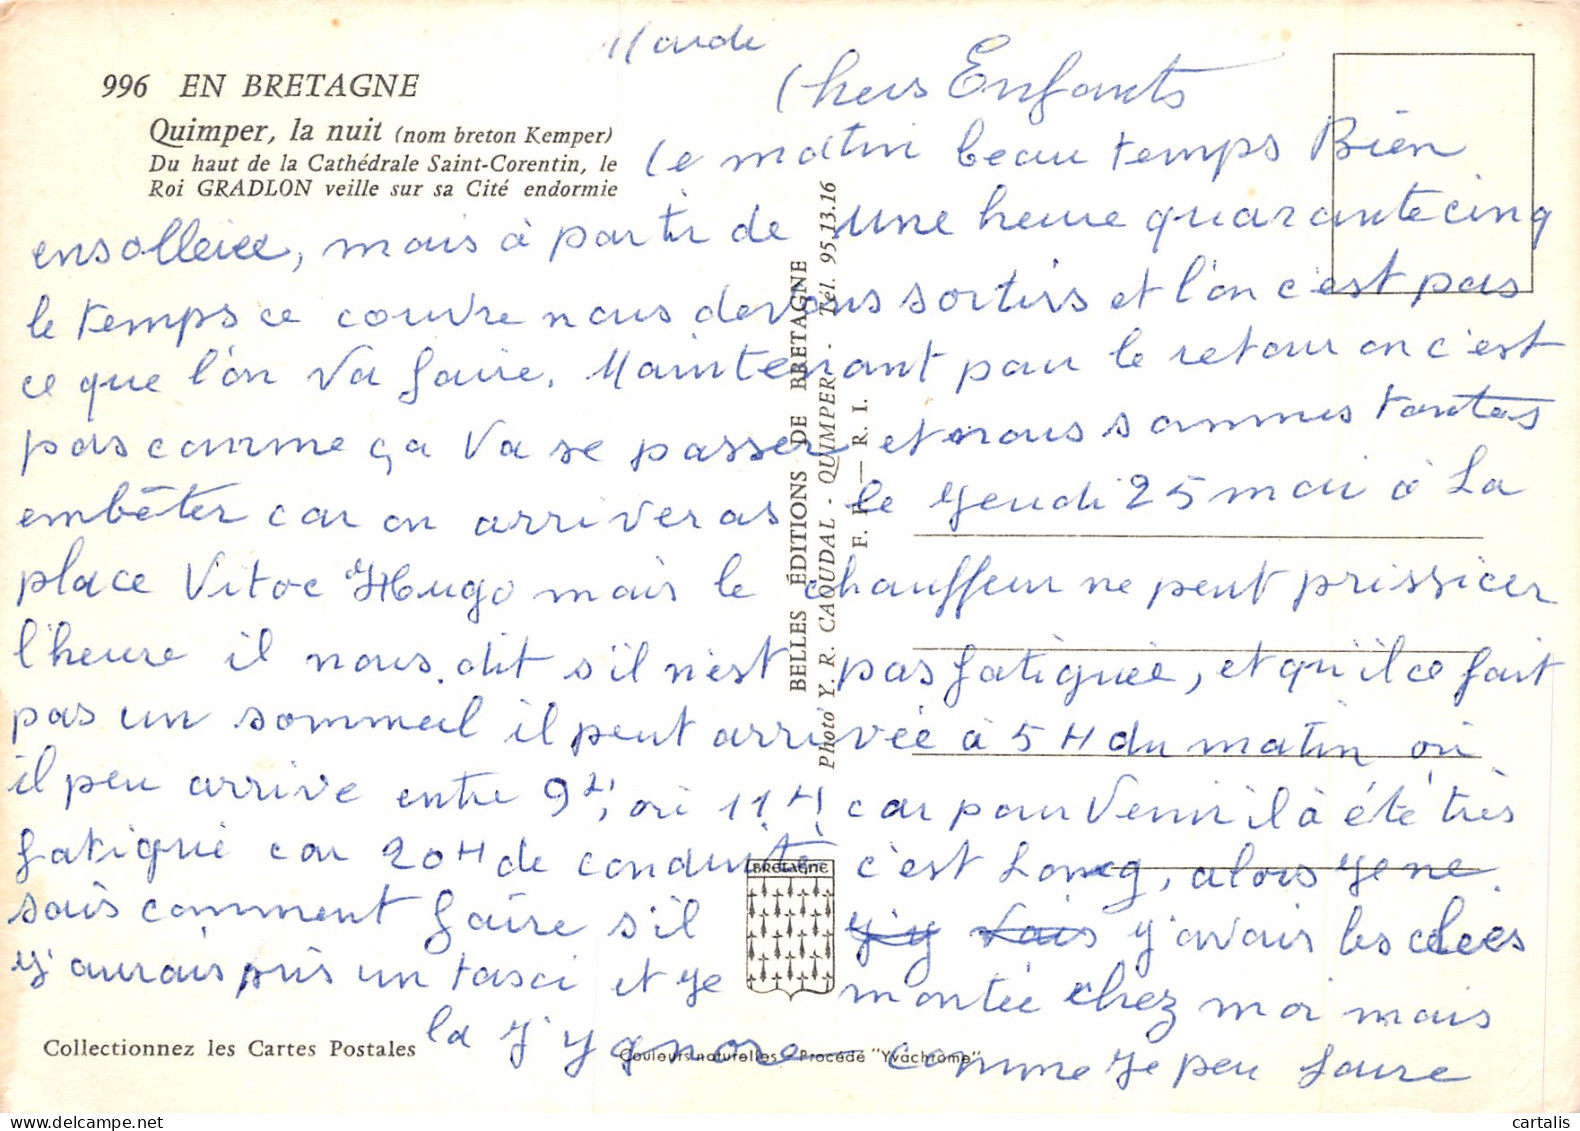 Mardi
996 EN BRETAGNE
Quimper, la nuit (nom breton Kemper)
Du haut de la Cathédrale Saint-Corentin, le
Roi GRADLON veille sur sa Cité endormie
Chers Enfants
Ce matin beau temps Bien
ensolleiée, mais à partir de une heure quarantecinq
le temps ce couvre nous devons sortirs et l'on c'est pas
ce que l'on va faire. Maintenant pour le retour on c'est
pas comme ça va se passer et nous sommes toutes
embêter car on arriveras le yeudi 25 mai à La
place Vitoc Hugo mais le chauffeur ne peut prissicer
l'heure il nous dit s'il n'est pas fatiguée, et qu'il ce fait
pas un sommeil il peut arrivée à 5H du matin ou
il peu arrive entre 9H, ou 11H car pour venir il à été très
fatigué car 20H de conduite c'est Long, alors ye ne
sais comment faire s'il y'avais les clees
y'aurais pris un tasci et ye montée chez moi mais
la y'ygnore comme ye peu faire
BELLES ÉDITIONS DE BRETAGNE
Photo Y. R. CAOUDAL - QUIMPER - Tél. 95.13.16
F. H. — R. I.
BRETAGNE
Collectionnez les Cartes Postales
Couleurs naturelles - Procédé "Yvachrome"
cartalis